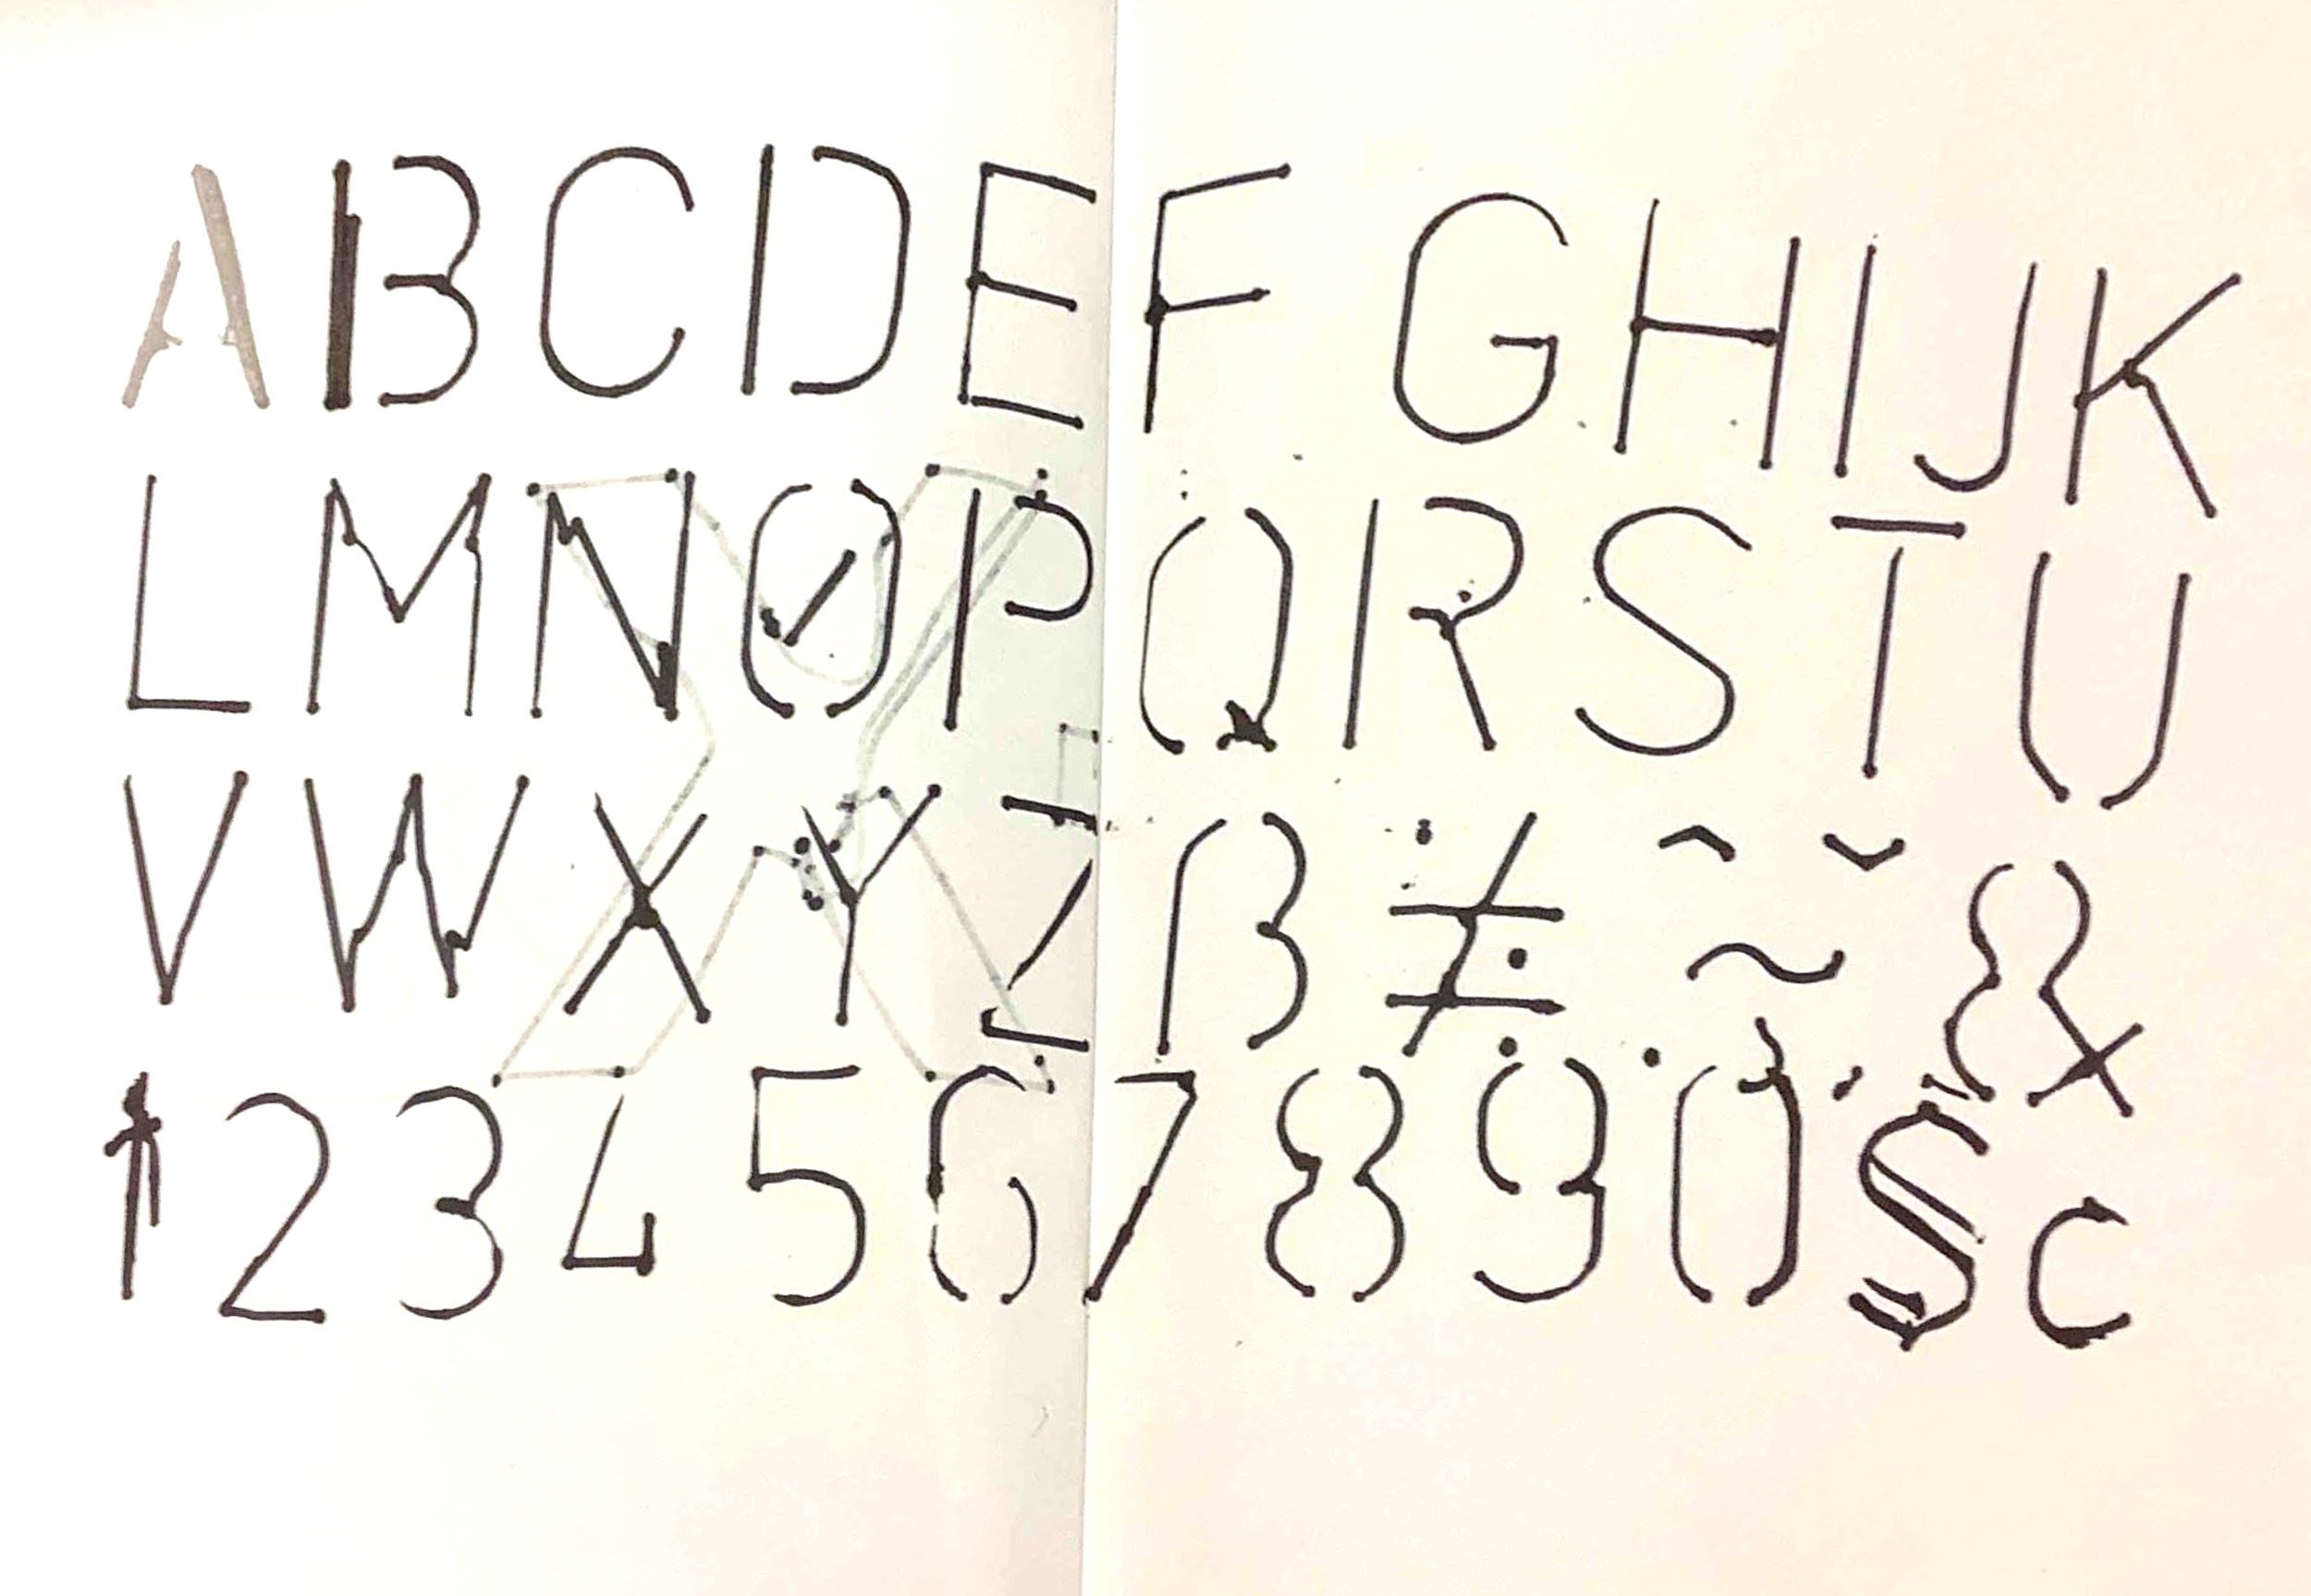 ABCDEFGHIJK
LMNØPQRSTU
VWXYZß≠~&
1234567890$c